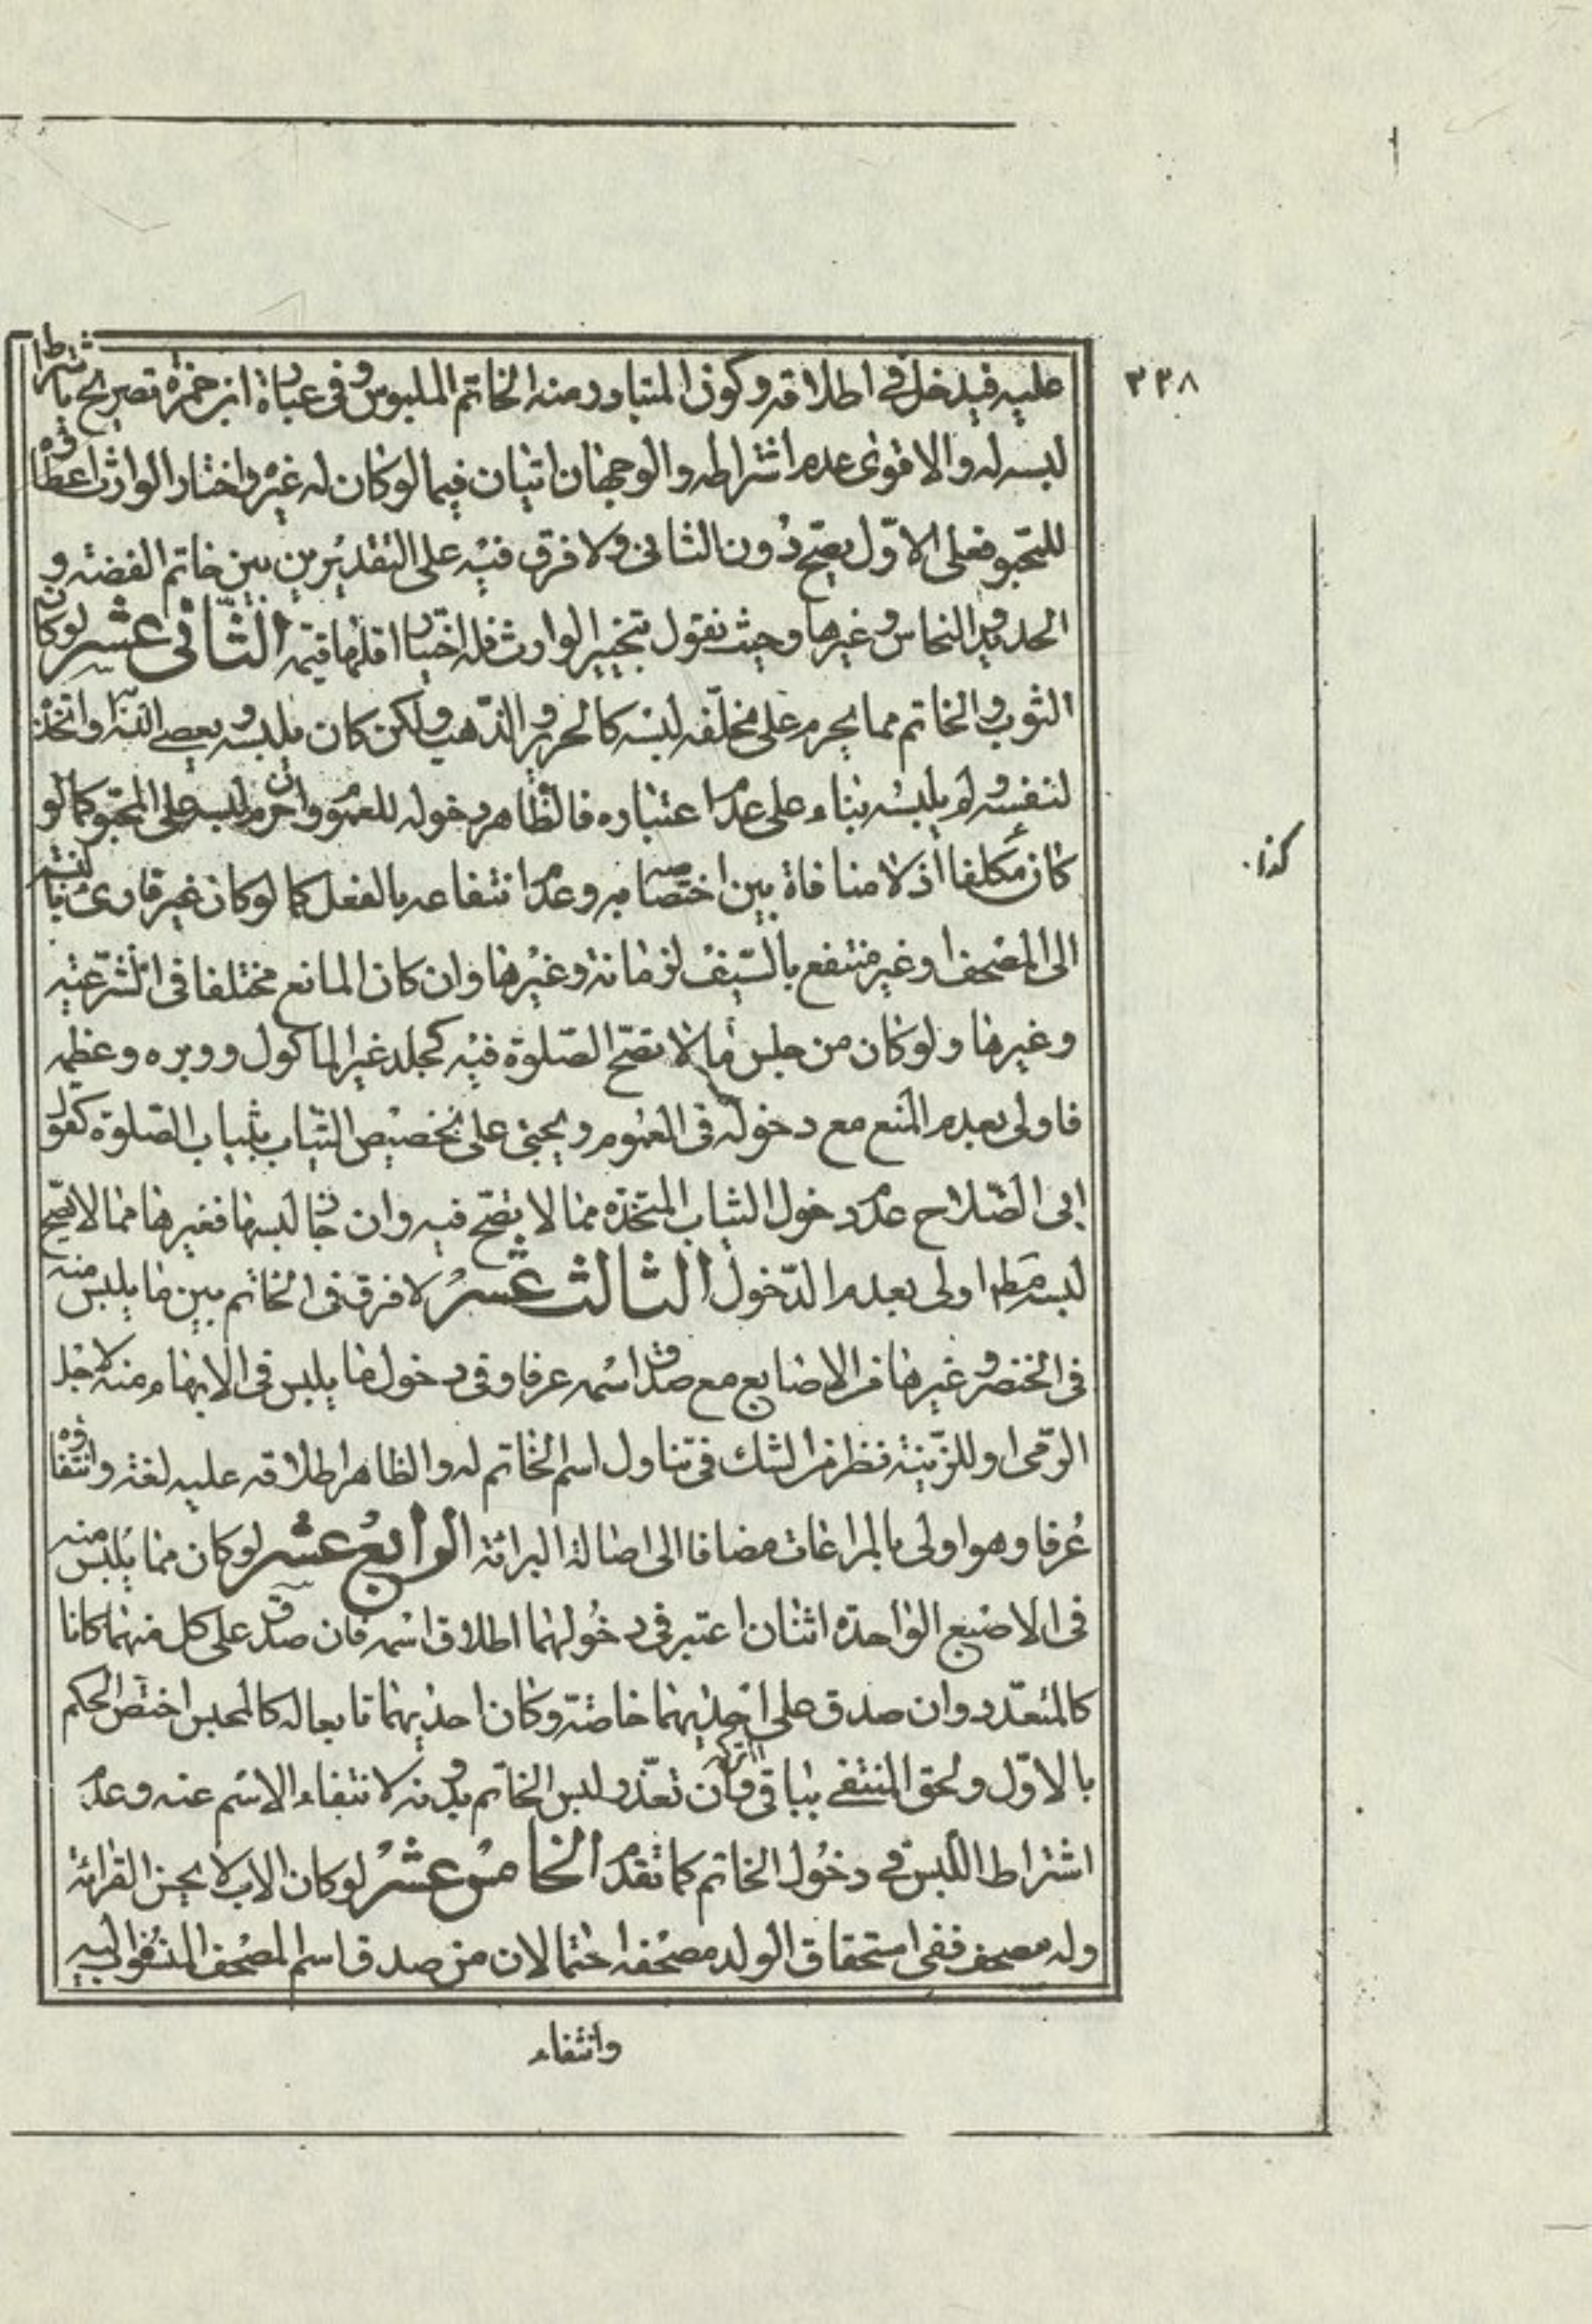 ٣٣٨
عليه فيدخل في اطلاقه وكون المتبادر منه الخاتم الملبوس وفى عبارة ابن حمزة تصريح باشتراط
لبسه له والاقوى عدم اشتراطه والوجهان اتيان فيما لو كان له غيره واختار الوارث اعطائه
للمحبو فعلى الاوّل يصحّ دون الثانى ولا فرق فيه على التقديرين بين خاتم الفضة و
الحديد والنحاس وغيرها وحيث نقول بتخيير الوارث فله اختيار اقلها قيمة الثّانى عشر لو كان
الثوب والخاتم مما يحرم على مخلّفه لبسه كالحرير والذّهب ولكن كان يلبسه ويعصى الله او اتخذه
لنفسه ولم يلبسه بناء على عدم اعتباره فالظاهر دخوله للعموم وان حرم لبسه على المحبو كما لو
كان مكلفا اذ لا منافاة بين اختصاصه به وعدم انتفاعه بالفعل كما لو كان غير قارئ بالنسبة
الى المصحف او غير منتفع بالسّيف لزمانة وغيرها وان كان المانع مختلفا فى الشّرعية
كذا
وغيرها ولو كان من جلس ما لا تصحّ الصّلوة فيه كجلد غير الماكول ووبره وعظمه
فاولى بعدم المنع مع دخوله فى العموم ويجئ على تخصيص الثياب بثياب الصّلوة كقول
ابى الصّلاح عدم دخول الثياب المتّخذة مما لا يصحّ فيه وان جاز لبسها فغيرها مما لا يصحّ
لبسه مط اولى بعدم الدّخول الثالث عشر لا فرق فى الخاتم بين ما يلبس منه
فى الخنصر وغيرها من الاصابع مع صدق اسمه عرفا وفى دخول ما يلبس فى الابهام منه لاجل
الرّمى او للزّينة نظر من الشك فى تناول اسم الخاتم له والظاهر اطلاقه عليه لغة وانتفاؤه
عرفا وهو اولى بالمراعات مضافا الى اصالة البرائة الرابع عشر لو كان مما يلبس منه
فى الاصبع الواحدة اثنان اعتبر فى دخولهما اطلاق اسمه فان صدق على كل منهما كانا
كالمتعدّد وان صدق على احديهما خاصّة وكان احديهما تابعا له كالمحبس اختصّ الحكم
بالاوّل ولحق المنتفى بباقى التركة وان تعذّر لبس الخاتم بدونه لانتفاء الاسم عنه وعدم
اشتراط اللّبس فى دخول الخاتم كما تقدّم الخامس عشر لو كان الاب لا يحسن القرائة
وله مصحف ففى استحقاق الولد مصحفه احتمالان من صدق اسم المصحف المنسوب اليه
وانتفاء